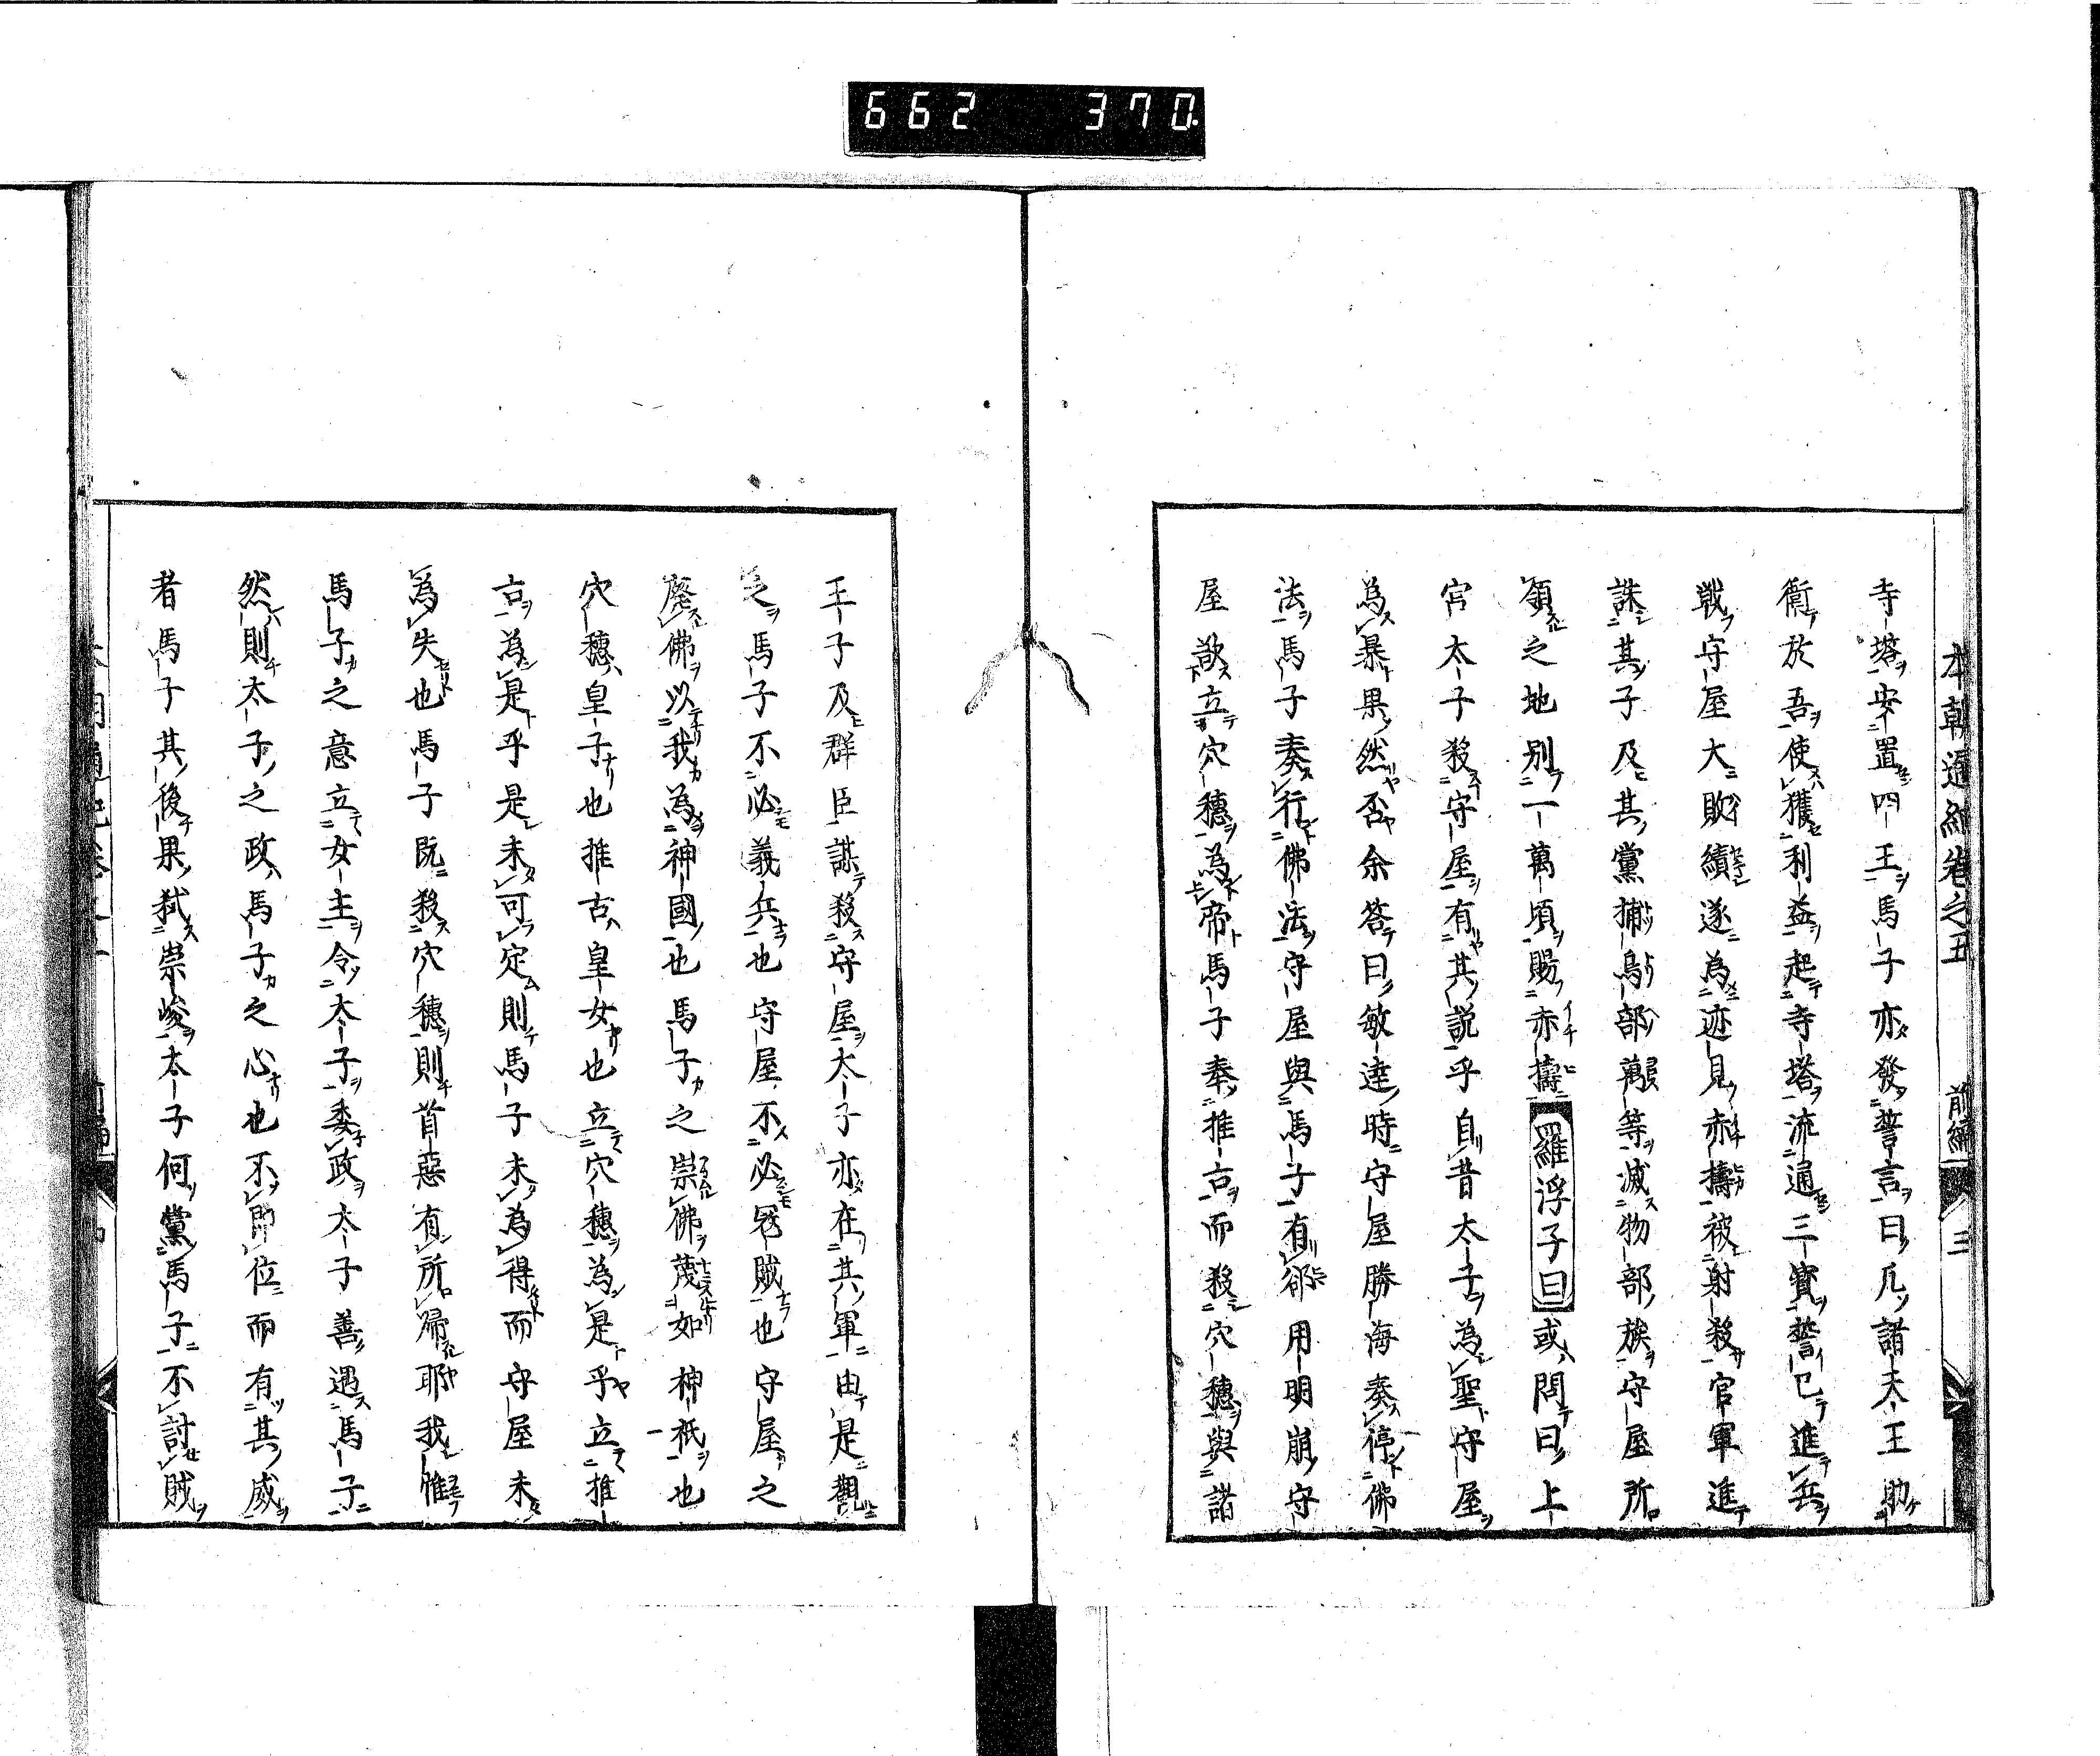 662 370
本朝通紀卷之五 前編 三
寺塔安置四王馬子亦發誓言曰凡諸天王助
衞於吾使獲利益起寺塔流通三寶誓已進兵
戰守屋大敗績遂為迹見赤擣被射殺官軍進
誅其子及其黨捕鳥部萬等滅物部族守屋所
領之地別一萬頃賜赤擣羅浮子曰或問曰上
宮太子殺守屋有其說乎自昔太子為聖守屋
為暴果然否余答曰敏達時守屋勝海奏停佛
法馬子奏行佛法守屋與馬子有郤用明崩守
屋欲立穴穗為帝馬子奉推古而殺穴穗與諸
王子及群臣謀殺守屋太子亦在其軍由是觀
之馬子不必義兵也守屋不必冦賊也守屋之
廢佛以我為神國也馬子之崇佛蔑如神祇也
穴穗皇子也推古皇女也立穴穗為是乎立推
古為是乎是未可定則馬子未為得而守屋未
為失也馬子既殺穴穗則首惡有所歸耶我惟
馬子之意立女主令太子委政太子善遇馬子
然則太子之政馬子之心也不即位而有其威
者馬子其後果弑崇峻太子何黨馬子不討賊